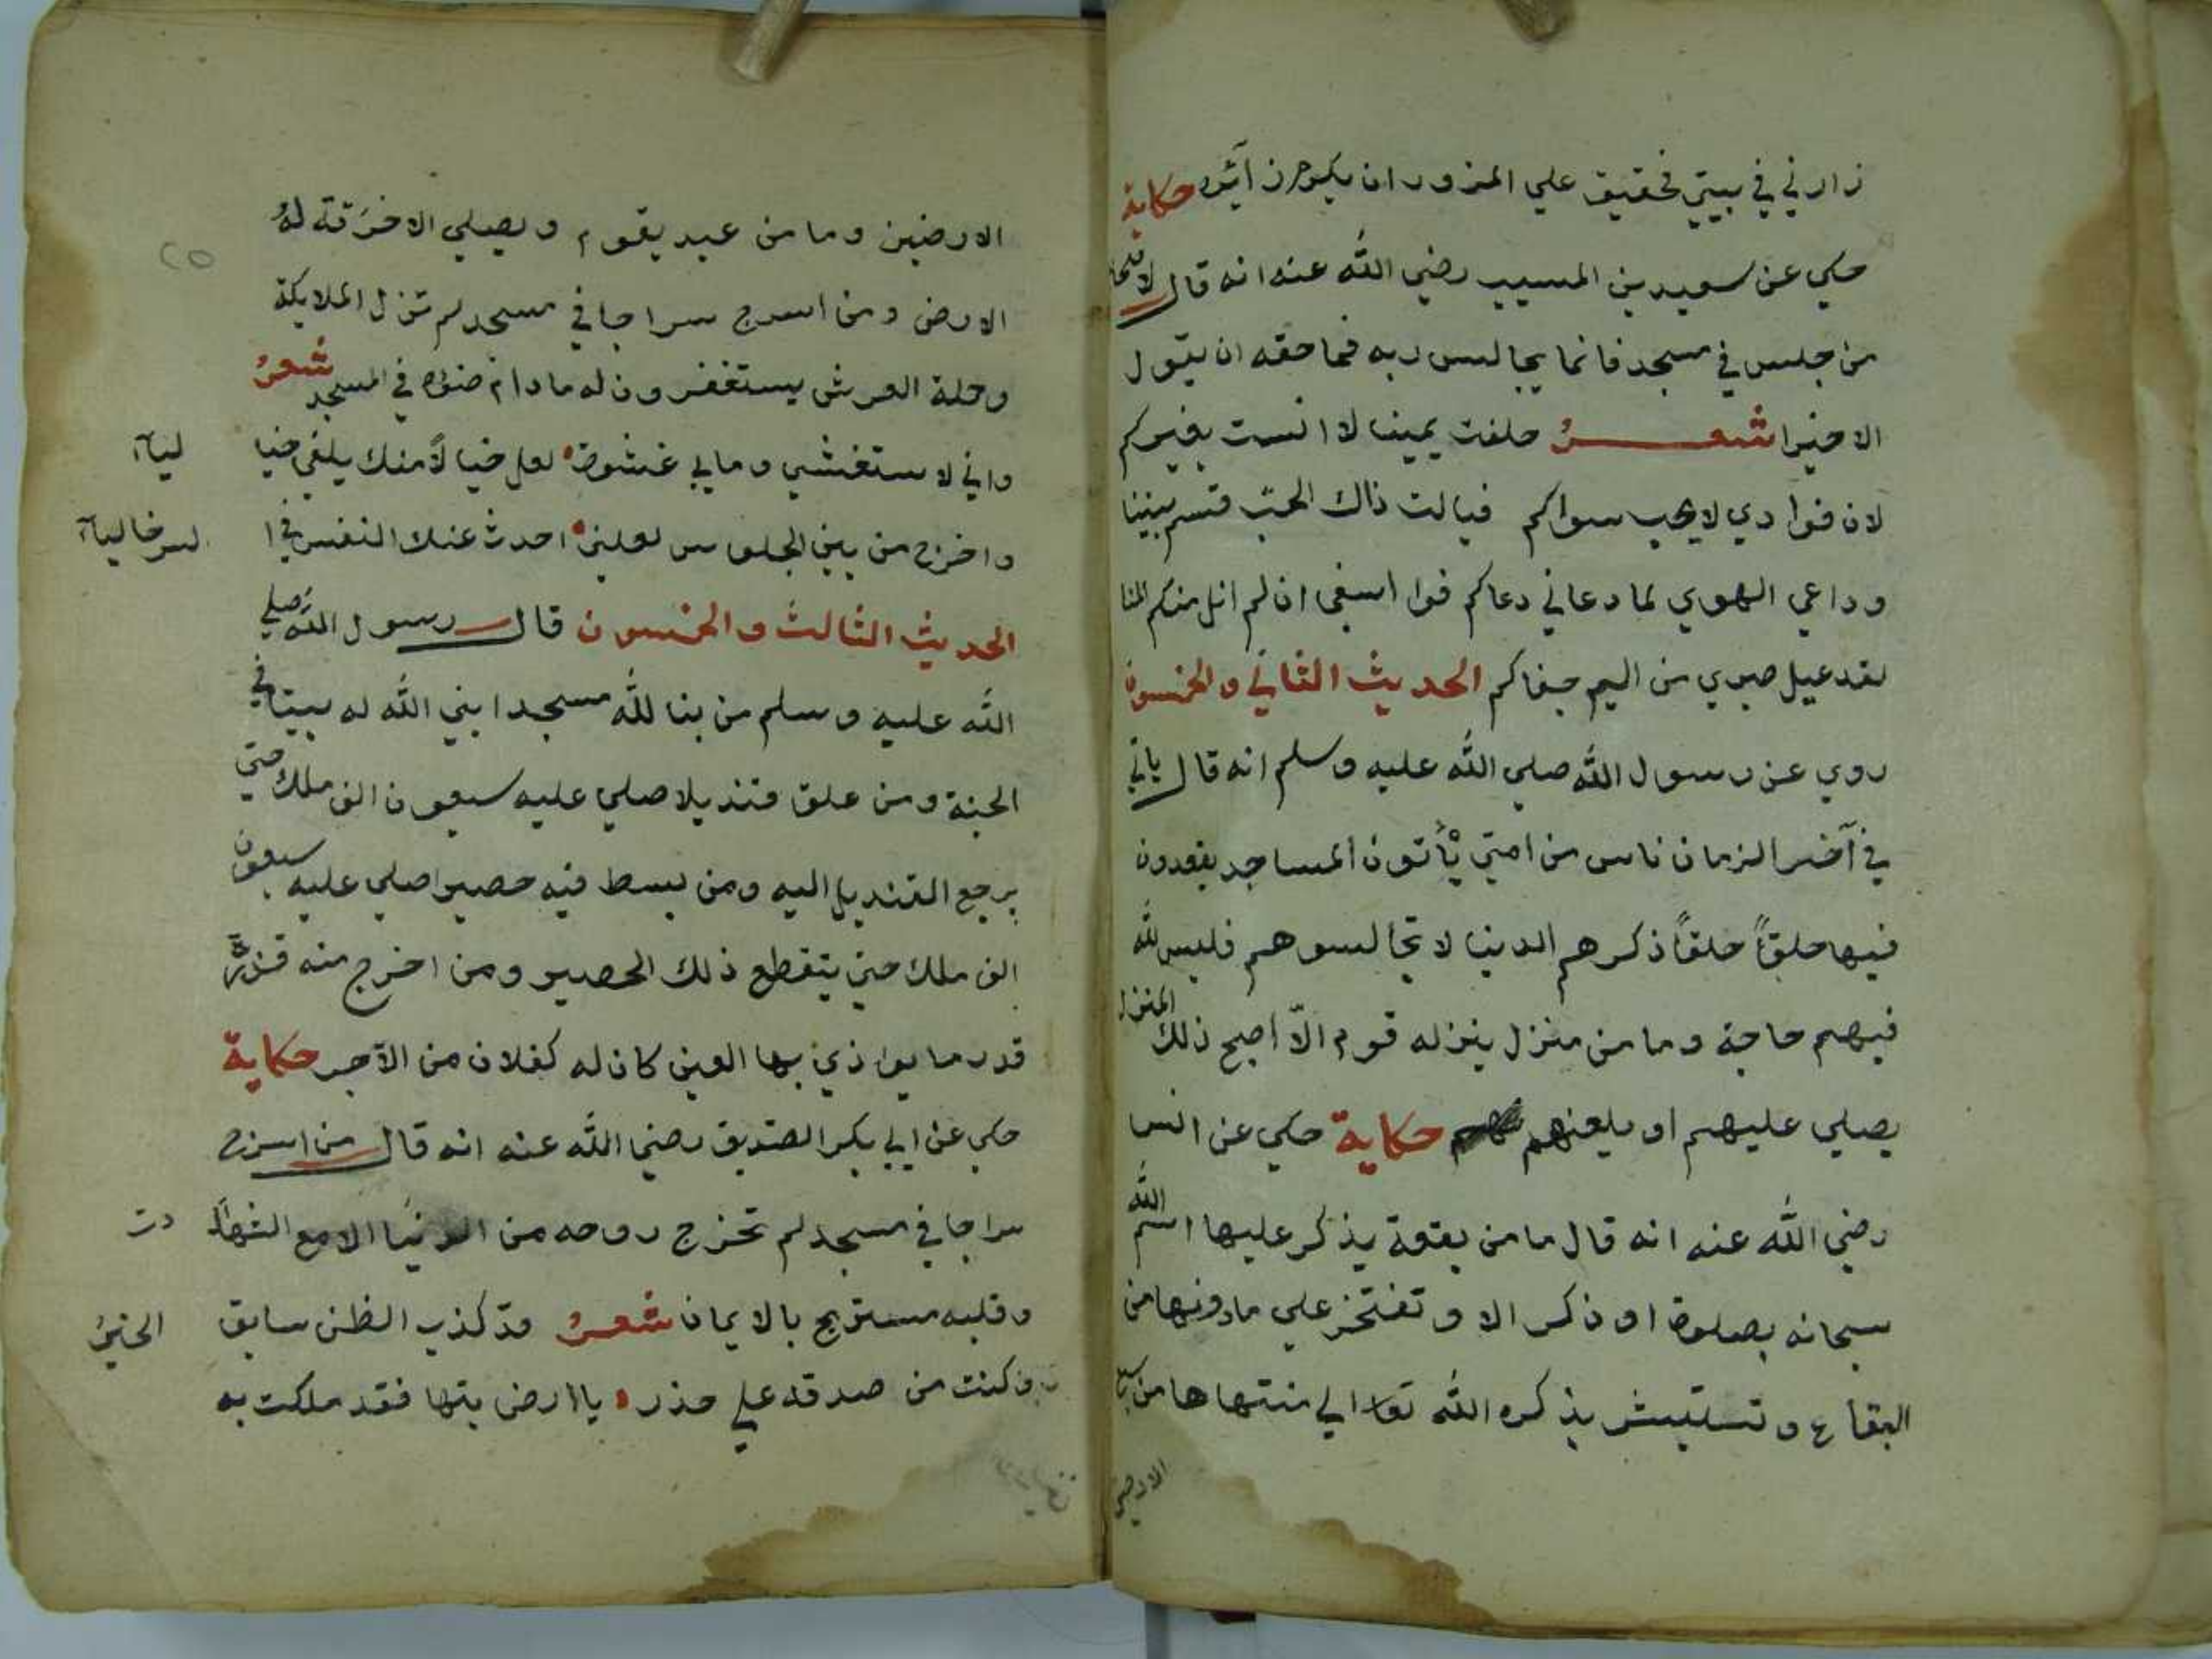 زارني في بيتي فحقيق علي المزور ان يكرم زائره حكاية
حكي عن سعيد بن المسيب رضي الله عنه انه قال
من جلس في مسجد فانما يجالس ربه فما حقه ان يقول
الا خيرا شعر حلفت يمينا لا انست بغيركم
لان فوادي لا يحب سواكم فيالت ذاك الحب قسم بيننا
وداعي الهوي لما دعاني دعاكم فوا اسفي ان لم انل منكم المنا
لقد عيل صبري من اليم جفاكم الحديث الثاني والخمسون
روي عن رسول الله صلي الله عليه وسلم انه قال ياتي
في آخر الزمان ناس من امتي يأتون المساجد يقعدون
فيها حلقاً حلقاً ذكرهم الدنيا لا تجالسوهم فليس لله
فيهم حاجة وما من منزل ينزله قوم الّا اصبح ذلك المنزل
يصلي عليهم او يلعنهم حكاية حكي عن انس
رضي الله عنه انه قال ما من بقعة يذكر عليها اسم الله
سبحانه بصلوة او ذكر الا وتفتخر علي مادونها من
البقاع وتستبشر بذكره الله تعا الي منتهاها من سبع
الارضين
الارضين وما من عبد يقوم ويصلي الا خرقة له
الارض ومن اسرج سراجا في مسجد لم تزل الملايكة
وحملة العرش يستغفرون له مادام ضوه في المسجد شعر
واني لاستغشي ومابي غشوة لعل خيالاً منك يلقي خيا
ليآ
واخرج من بين الجلوس لعلني احدث عنك النفس في ا
لسر خاليآ
الحديث الثالث والخمسون قال رسول الله صلي
الله عليه وسلم من بنا لله مسجدا بني الله له بيتا في
الجنة ومن علق قنديلا صلي عليه سبعون الف ملك حتي
يرجع القنديل اليه ومن بسط فيه حصيرا صلي عليه سبعون
الف ملك حتي يتقطع ذلك الحصير ومن اخرج منه قذرة
قدر ما يواذي بها العين كان له كفلان من الآجر حكاية
حكي عن ابي بكر الصديق رضي الله عنه انه قال من اسرج
سراجا في مسجد لم تخرج روحه من الدنيا الا مع الشها
دت
وقلبه مستريح بالايمان شعر قد كذب الظن سابق
الخبر
وكنت من صدقه علي حذر يا ارض بتها فقد ملكت به